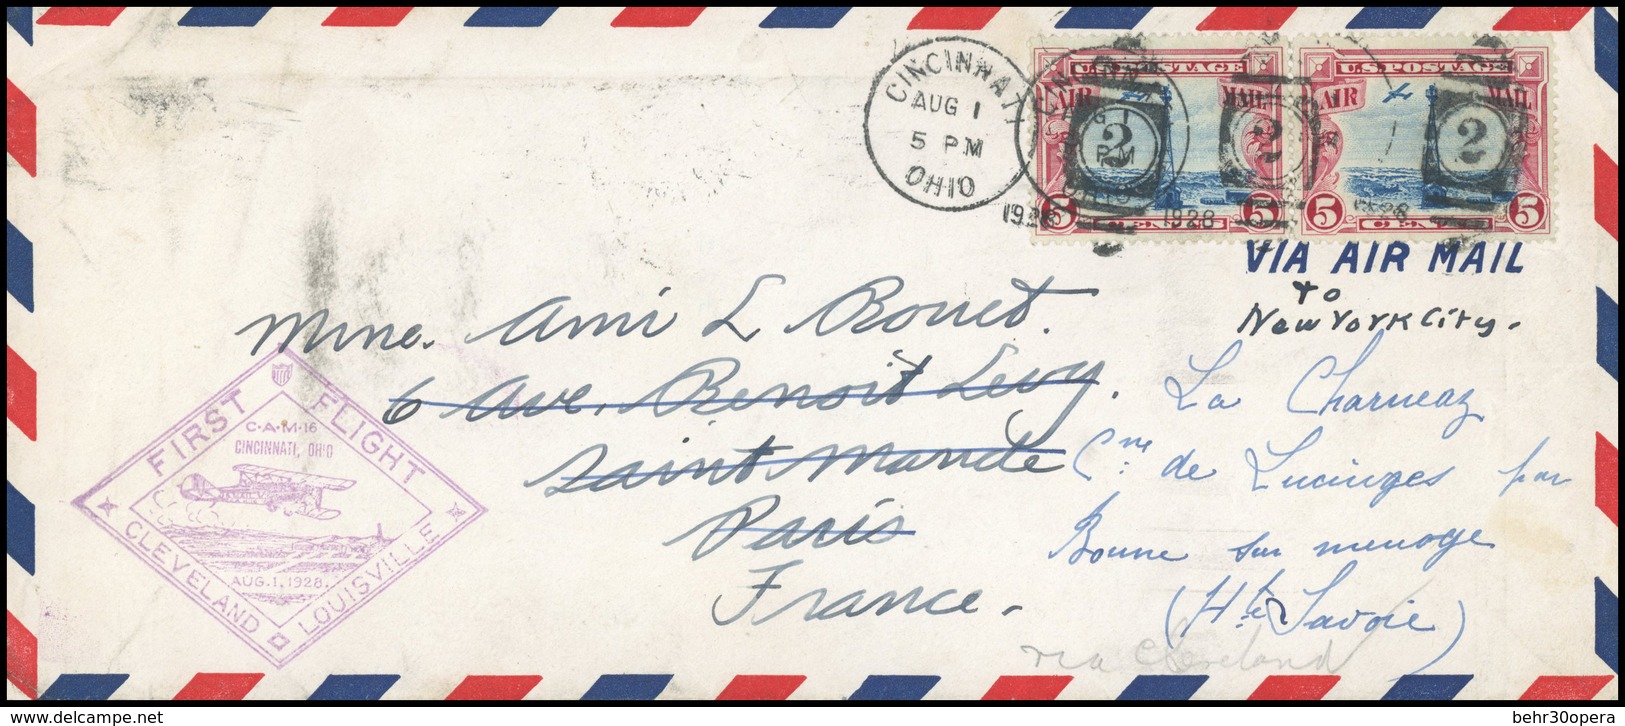 CINCINNATI
AUG 1
5 PM
OHIO
1928
1928
U.S. POSTAGE
AIR MAIL
5 CENTS 5
U.S. POSTAGE
AIR MAIL
5 CENTS 5
2
2
2
VIA AIR MAIL
to
New York City.
Mme. Ami L Bouet.
6 Ave. Benoit Levy.
Saint Mande
Paris
France.
La Charneaz
Cne de Lucinges par
Bonne sur menoge
(Hte Savoie)
via Cleveland
FIRST FLIGHT
C·A·M·16
CINCINNATI, OHIO
AUG. 1, 1928.
CLEVELAND
LOUISVILLE
behr30opera